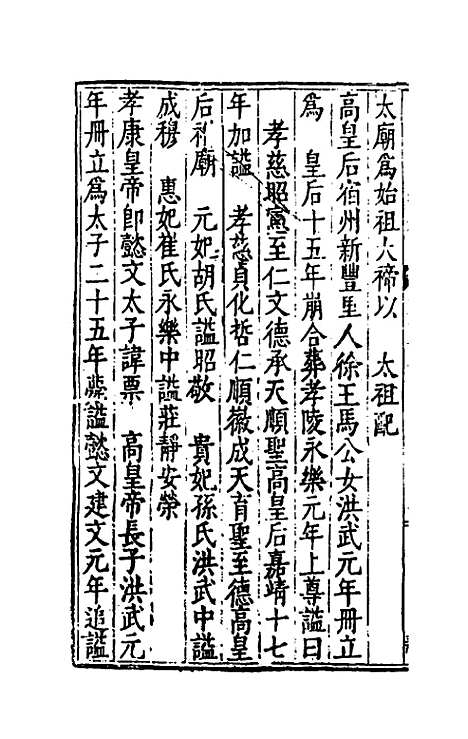 太廟爲始祖大禘以　太祖配
高皇后宿州新豐里人徐王馬公女洪武元年冊立
爲　皇后十五年崩合葬孝陵永樂元年上尊謚曰
孝慈昭憲至仁文德承天順聖高皇后嘉靖十七
年加謚　孝慈貞化哲仁順徽成天育聖至德高皇
后祔廟　元妃胡氏謚昭敬　貴妃孫氏洪武中謚
成穆　惠妃崔氏永樂中謚莊靜安榮
孝康皇帝卽懿文太子諱票　高皇帝長子洪武元
年冊立爲太子二十五年薨謚懿文建文元年追謚